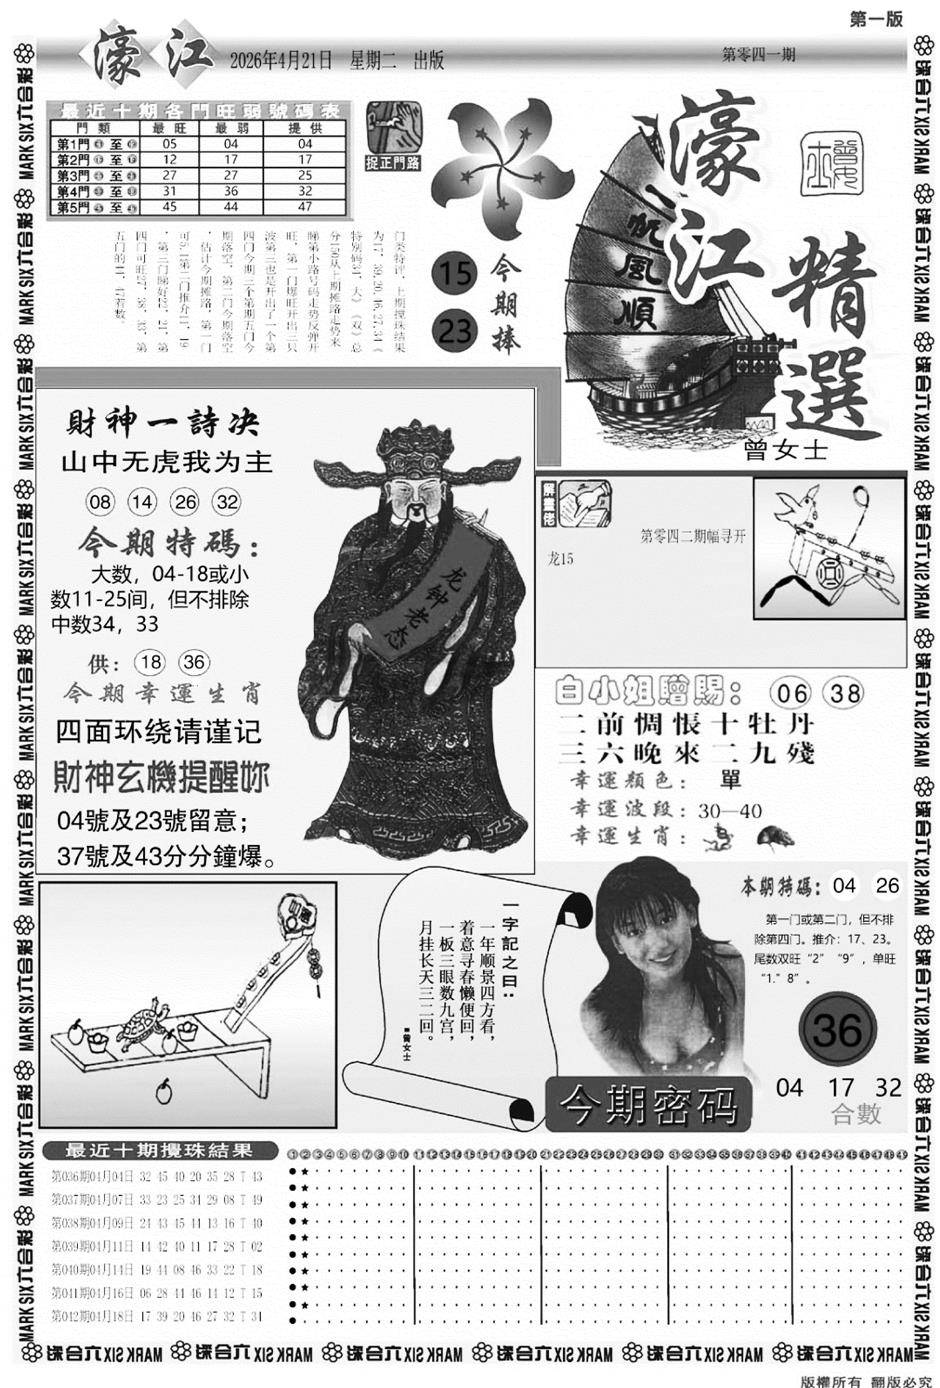 第一版
濠江 2026年4月21日 星期二 出版
第零四一期
最近十期各門旺弱號碼表
門類 最旺 最弱 提供
第1門 至 05 04 04
第2門 至 12 17 17
第3門 至 27 27 25
第4門 至 31 36 32
第5門 至 45 44 47
捉正門路
门类特评，上期搅珠结果
四门可旺27、38、33，第
五门的41、47看数。
15
23
今期捧
一帆風順
濠江精選
曾女士
財神一詩决
山中无虎我为主
08 14 26 32
今期特碼：
大数，04-18或小
数11-25间，但不排除
中数34，33
供： 18 36
今期幸運生肖
四面环绕请谨记
財神玄機提醒妳
04號及23號留意；
37號及43分分鐘爆。
龙钟老态
解畫佬
第零四二期幅寻开
龙15
白小姐贈賜： 06 38
二前惆悵十牡丹
三六晚來二九殘
幸運顏色： 單
幸運波段：30—40
幸運生肖：
一字記之曰：：
一年顺景四方看，
着意寻春懒便回，
一板三眼数九宫，
月挂长天三二回。
■曾女士
本期特碼： 04 26
第一门或第二门，但不排
除第四门。推介：17、23。
尾数双旺“2”“9”，单旺
“1.”8”。
36
今期密码
04 17 32
合數
最近十期攪珠結果
第036期04月04日 32 45 40 20 35 28 T 43
第037期04月07日 33 23 25 34 29 08 T 49
第038期04月09日 24 43 45 44 13 16 T 40
第039期04月11日 14 42 40 11 17 28 T 02
第040期04月14日 19 44 08 46 33 22 T 18
第041期04月16日 06 28 44 46 14 12 T 15
第042期04月18日 17 39 20 46 27 32 T 34
六合彩 MARK SIX
版權所有 翻版必究